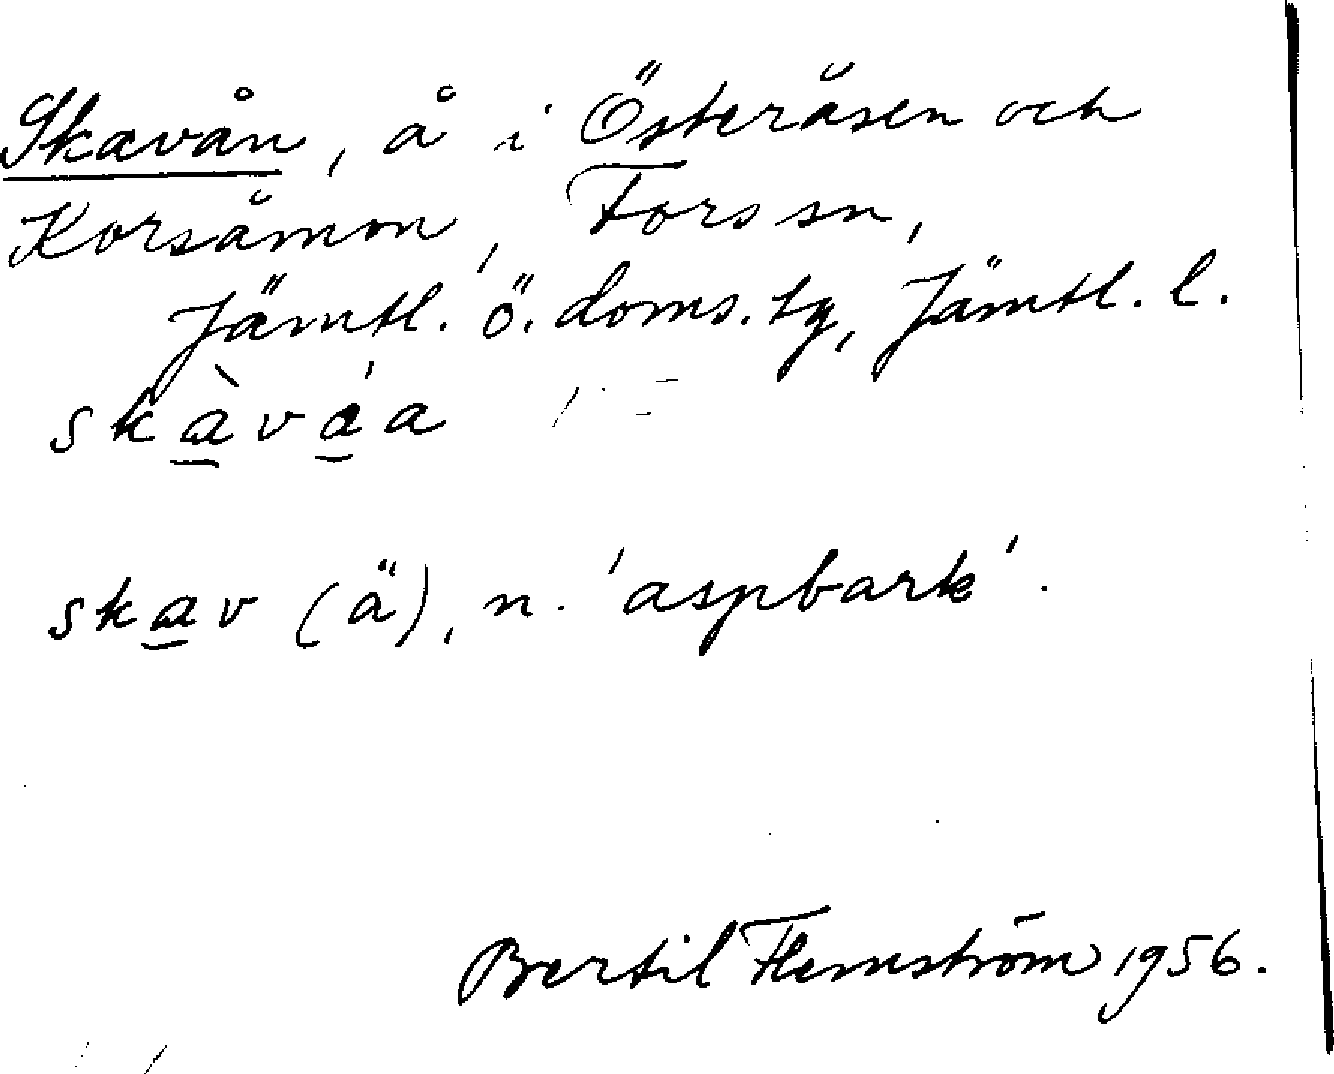 Skavån, å i Österåsen och
Korsåmon, Fors sn,
Jämtl. ö. doms. tg, Jämtl. l.
skàváa
skav (ä), n. 'aspbark'.
Bertil Flemström 1956.